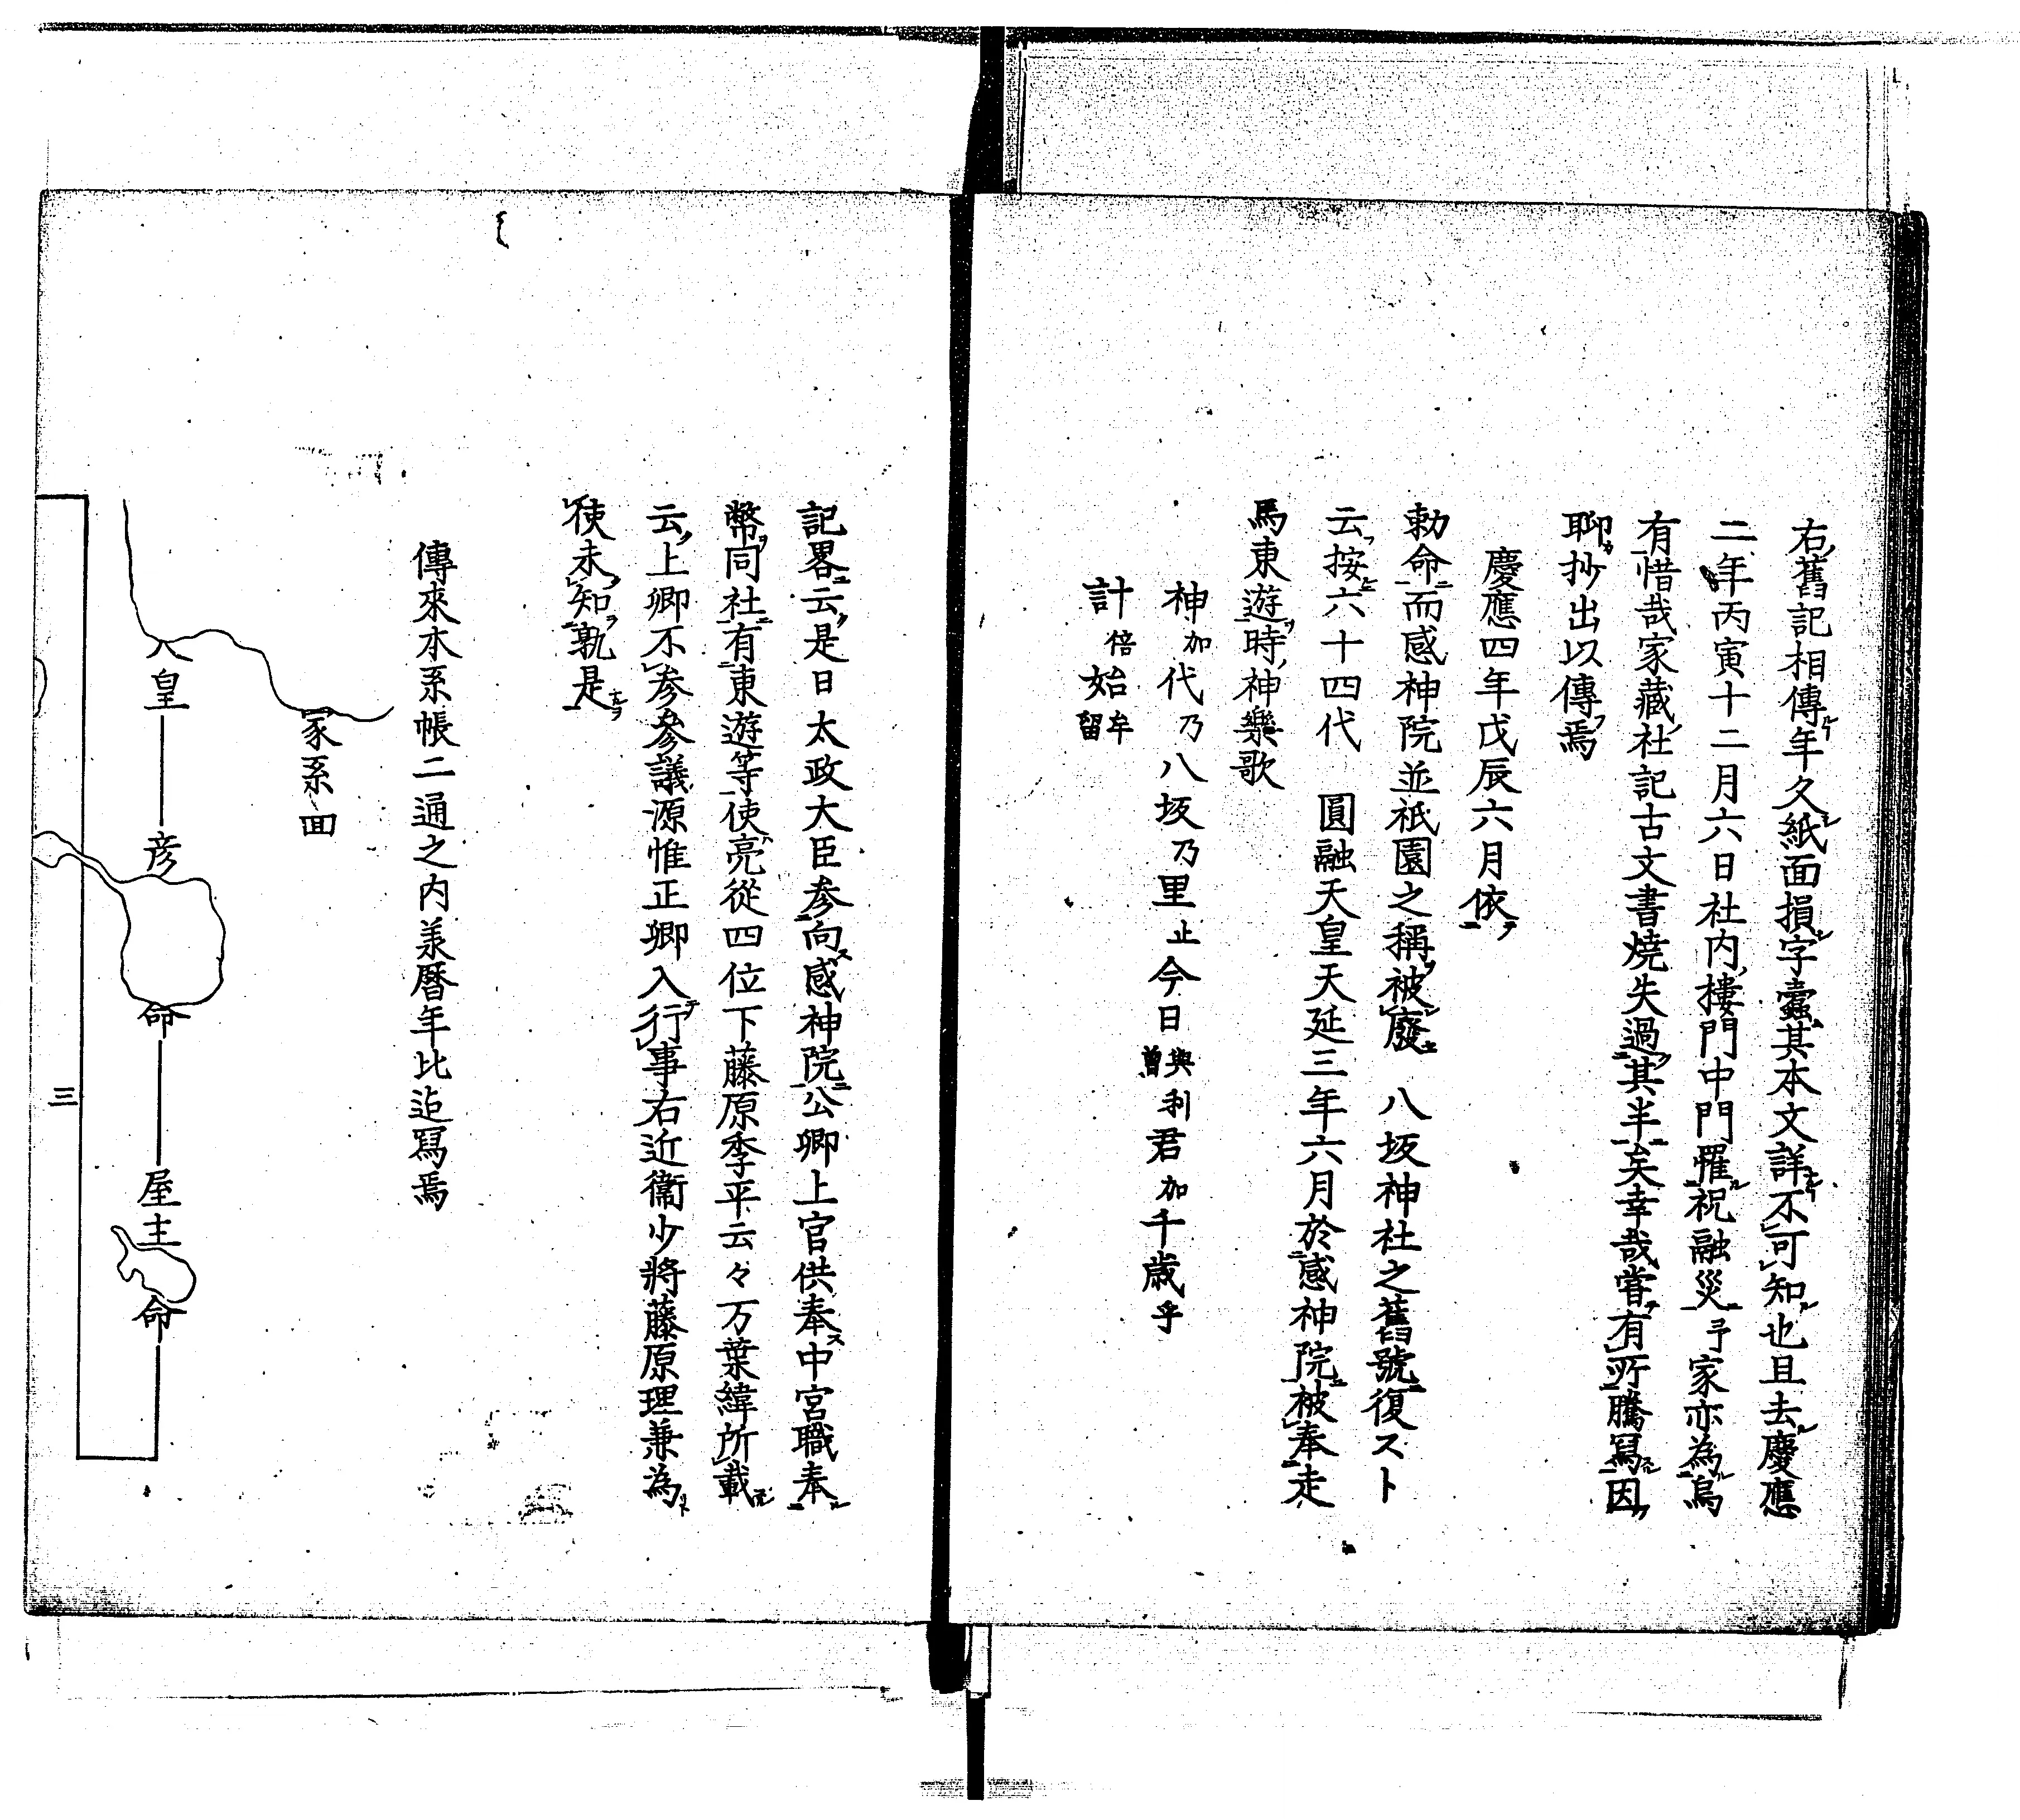 右舊記相傳年久紙面損字蠹其本文詳不可知也且去慶應
二年丙寅十二月六日社内樓門中門罹祝融災予家亦為烏
有惜哉家藏社記古文書燒失過其半矣幸哉嘗有所騰寫因
聊抄出以傳焉
慶應四年戊辰六月依
勅命而感神院並祇園之稱被廢 八坂神社之舊號復スト
云按六十四代 圓融天皇天延三年六月於感神院被奉走
馬東遊時神樂歌
神加代乃八坂乃里止今日與利曽君加千歳乎
計倍始牟留
記畧云是日太政大臣参向感神院公卿上官供奉中宮職奉
幣同社有東遊等使亮從四位下藤原季平云々万葉緯所載
云上卿不参参議源惟正卿入行事右近衞少將藤原理兼為
使未知孰是
傳來本系帳二通之内兼暦年比迠寫焉
家系啚
八皇
彦
命
屋主
命
三